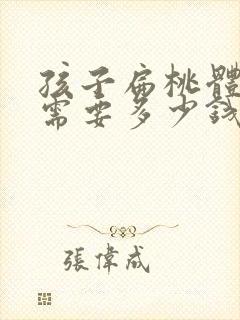 孩子扁桃體
需要多少錢
張偉成